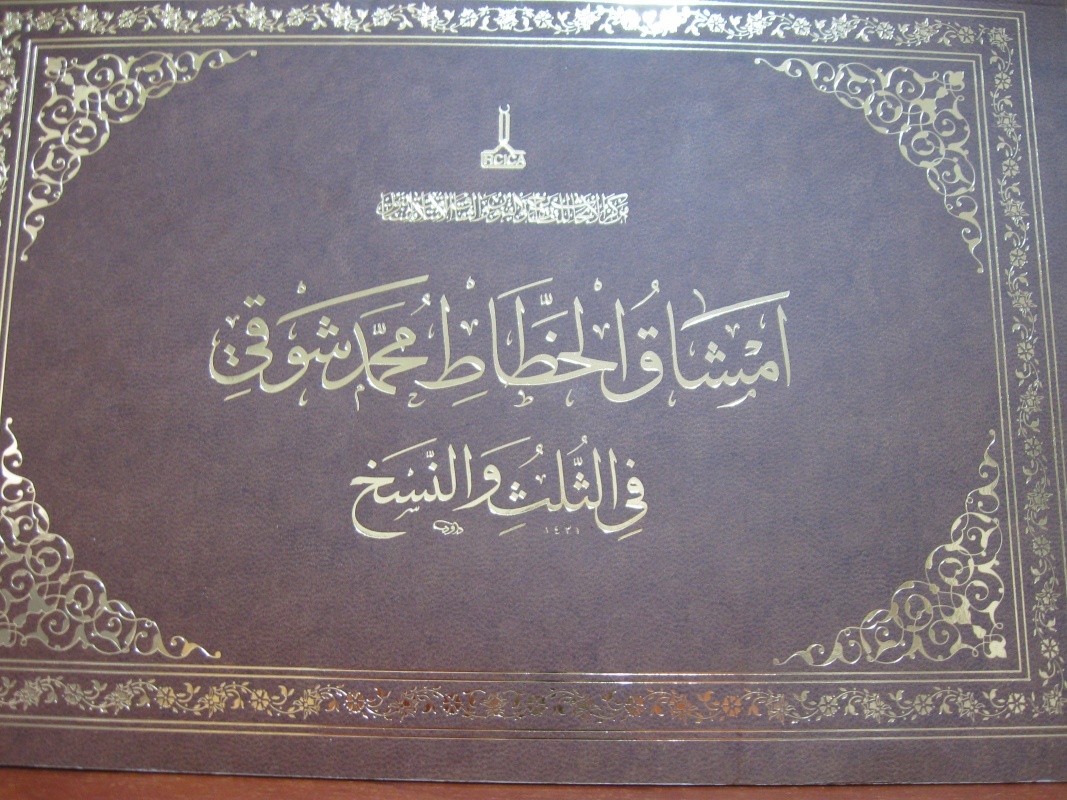 IRCICA
مركز الأبحاث للتاريخ والفنون والثقافة الإسلامية باستانبول
امشاق الخطاط محمد شوقي
في الثلث والنسخ
داود ١٤٢١